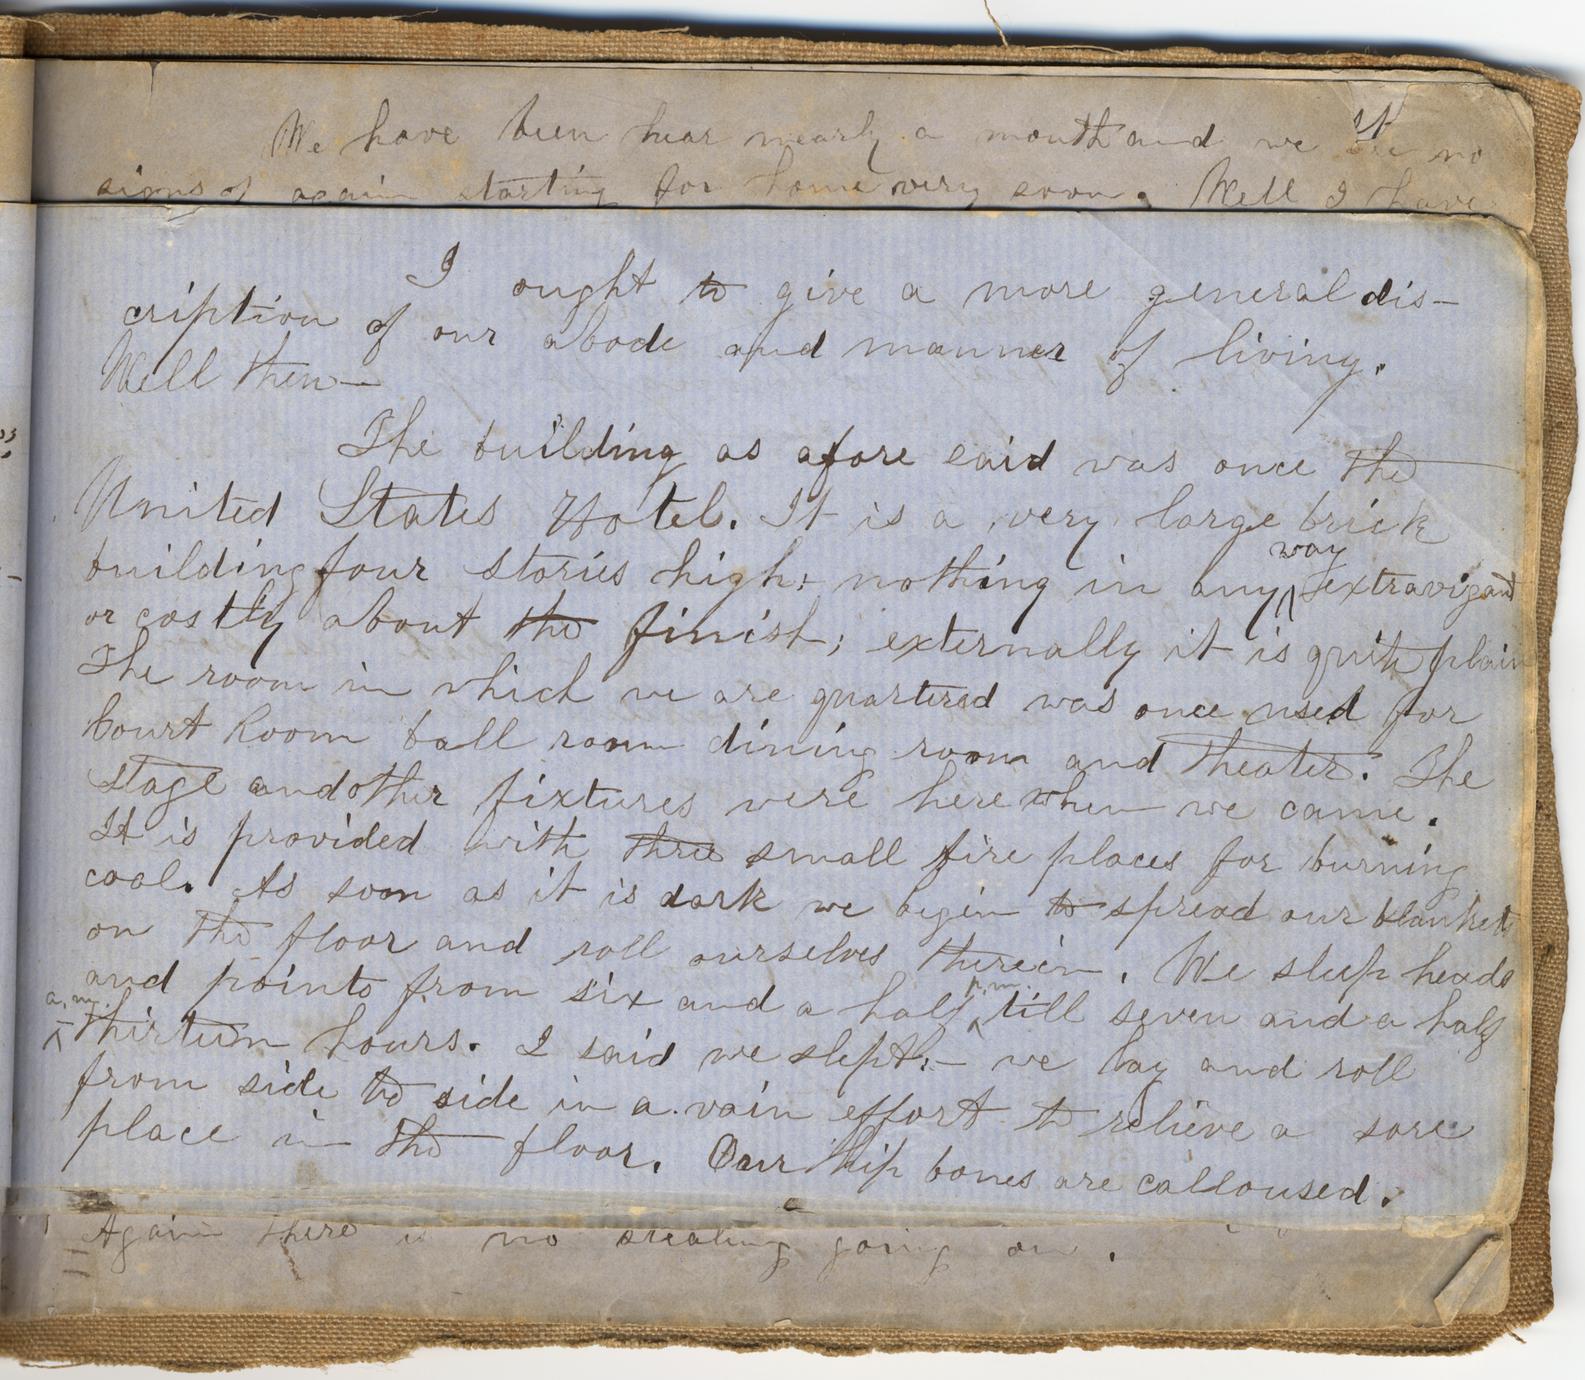 We have been hear nearly a month and we see no
signs of again starting for home very soon. Well I have
I ought to give a more general dis-
cription of our abode and manner of living.
Well then—
The building as afore said was once the
United States Hotel. It is a very large brick
building four stories high: nothing in any way extravigant
or costly about the finish; externally it is quite plain
The room in which we are quartered was once used for
Court Room ball room dining room and theater. The
stage and other fixtures were here when we came.
It is provided with three small fire places for burning
coal. As soon as it is dark we begin to spread our blankets
on the floor and roll ourselves therein. We sleep heads
and points from six and a half p.m. till seven and a half
a.m. thirteen hours. I said we slept:— we lay and roll
from side to side in a vain effort to relieve a sore
place in the floor. Our hip bones are calloused.
Again there is no stealing going on.